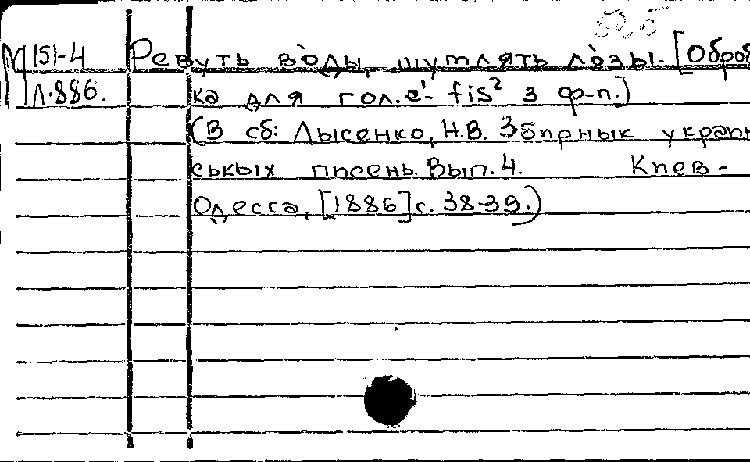 М 151-4 Ревуть во̂ды, шумлять ло̂зы. [Оброб
Л.886. ка для гол. e¹- fis² з ф-п.)
(В сб: Лысенко, Н.В. Збирнык украин
ськых писень. Вып. 4. Киев -
Одесса, [1886] с. 38-39.)